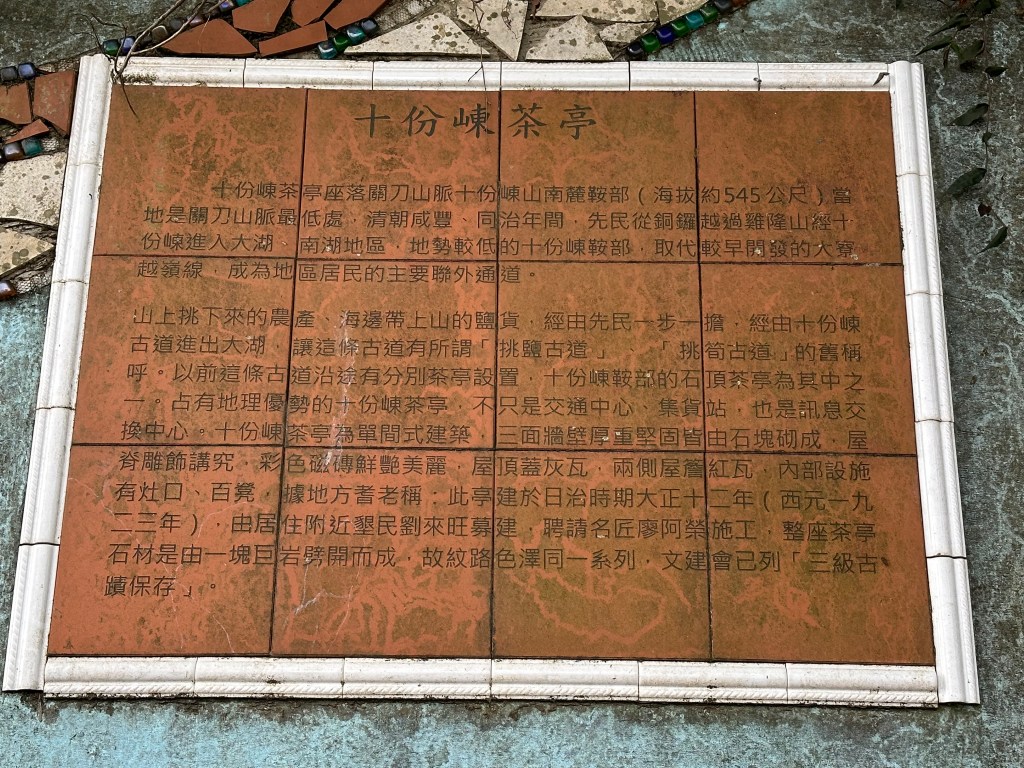 十份崠茶亭
十份崠茶亭座落關刀山脈十份崠山南麓鞍部(海拔約545公尺)當
地是關刀山脈最低處,清朝咸豐、同治年間,先民從銅鑼越過雞隆山經十
份崠進入大湖、南湖地區,地勢較低的十份崠鞍部,取代較早開發的大寮
越嶺線,成為地區居民的主要聯外通道。
山上挑下來的農產、海邊帶上山的鹽貨,經由先民一步一擔,經由十份崠
古道進出大湖,讓這條古道有所謂「挑鹽古道」 「挑筍古道」的舊稱
呼。以前這條古道沿途有分別茶亭設置,十份崠鞍部的石頂茶亭為其中之
一。占有地理優勢的十份崠茶亭,不只是交通中心、集貨站,也是訊息交
換中心。十份崠茶亭為單間式建築,三面牆壁厚重堅固皆由石塊砌成,屋
脊雕飾講究,彩色磁磚鮮艷美麗,屋頂蓋灰瓦,兩側屋簷紅瓦,內部設施
有灶口、百凳,據地方耆老稱:此亭建於日治時期大正十二年(西元一九
二三年),由居住附近墾民劉來旺募建,聘請名匠廖阿榮施工,整座茶亭
石材是由一塊巨岩劈開而成,故紋路色澤同一系列,文建會已列「三級古
蹟保存」。